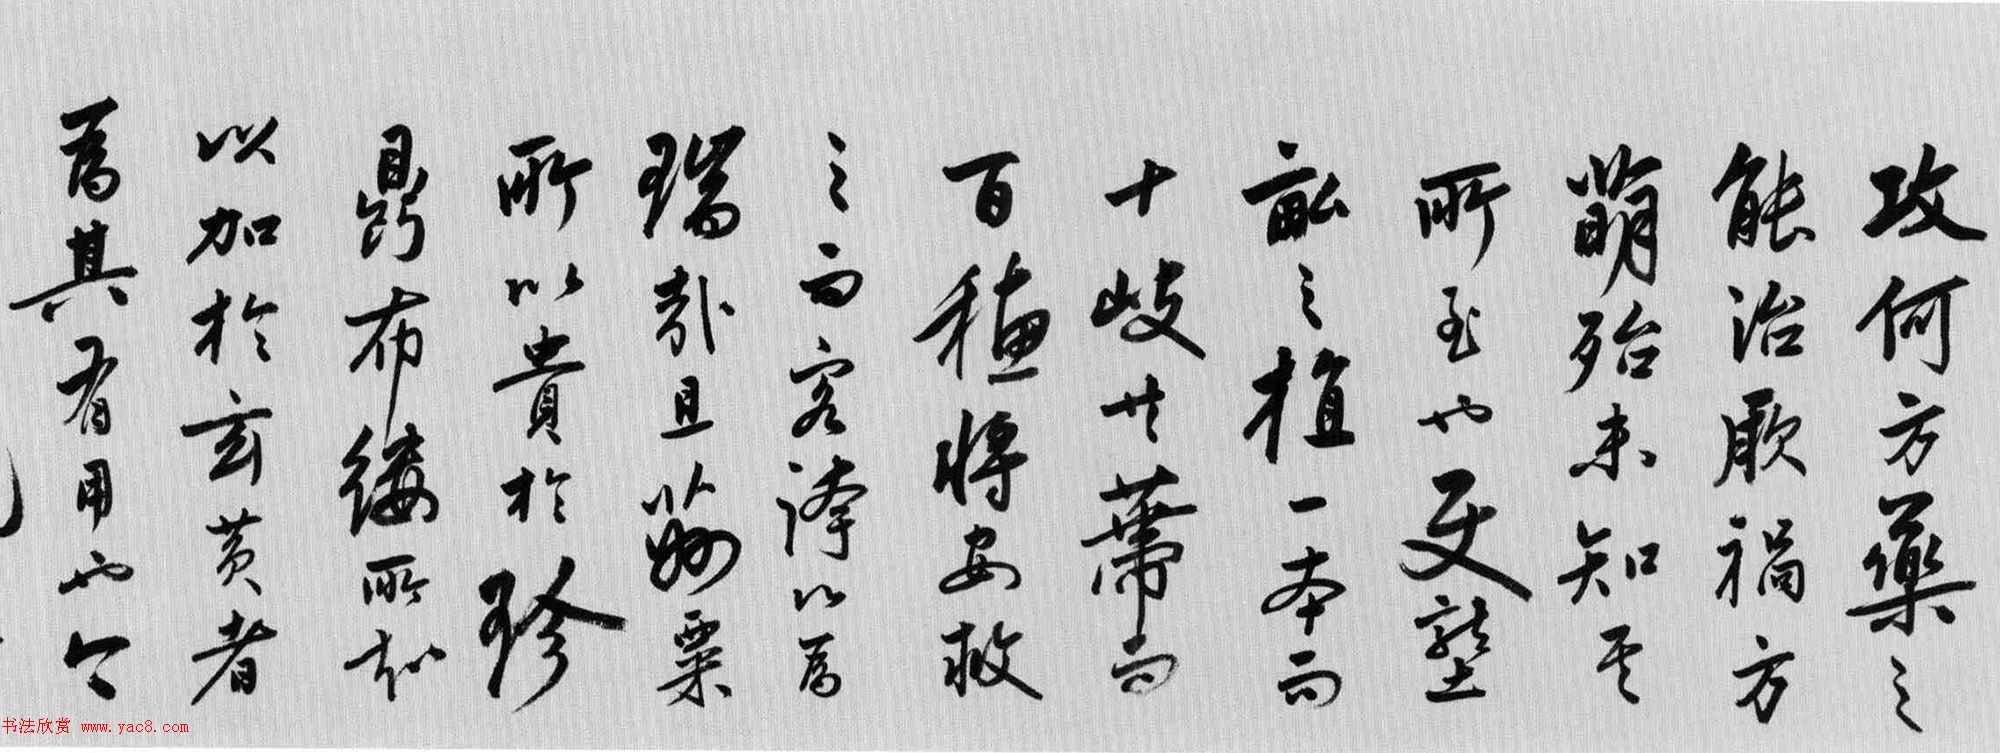 攻何方藥之
能治厥禍方
萌殆未知其
所至也更壟
畝之植一本而
十歧共蒂而
百穗將安救
之而容誇以為
瑞哉且芻粟
所以貴於珍
鼎布縷所以
以加於玄黃者
為其有用也今
书法欣赏 www.yac8.com